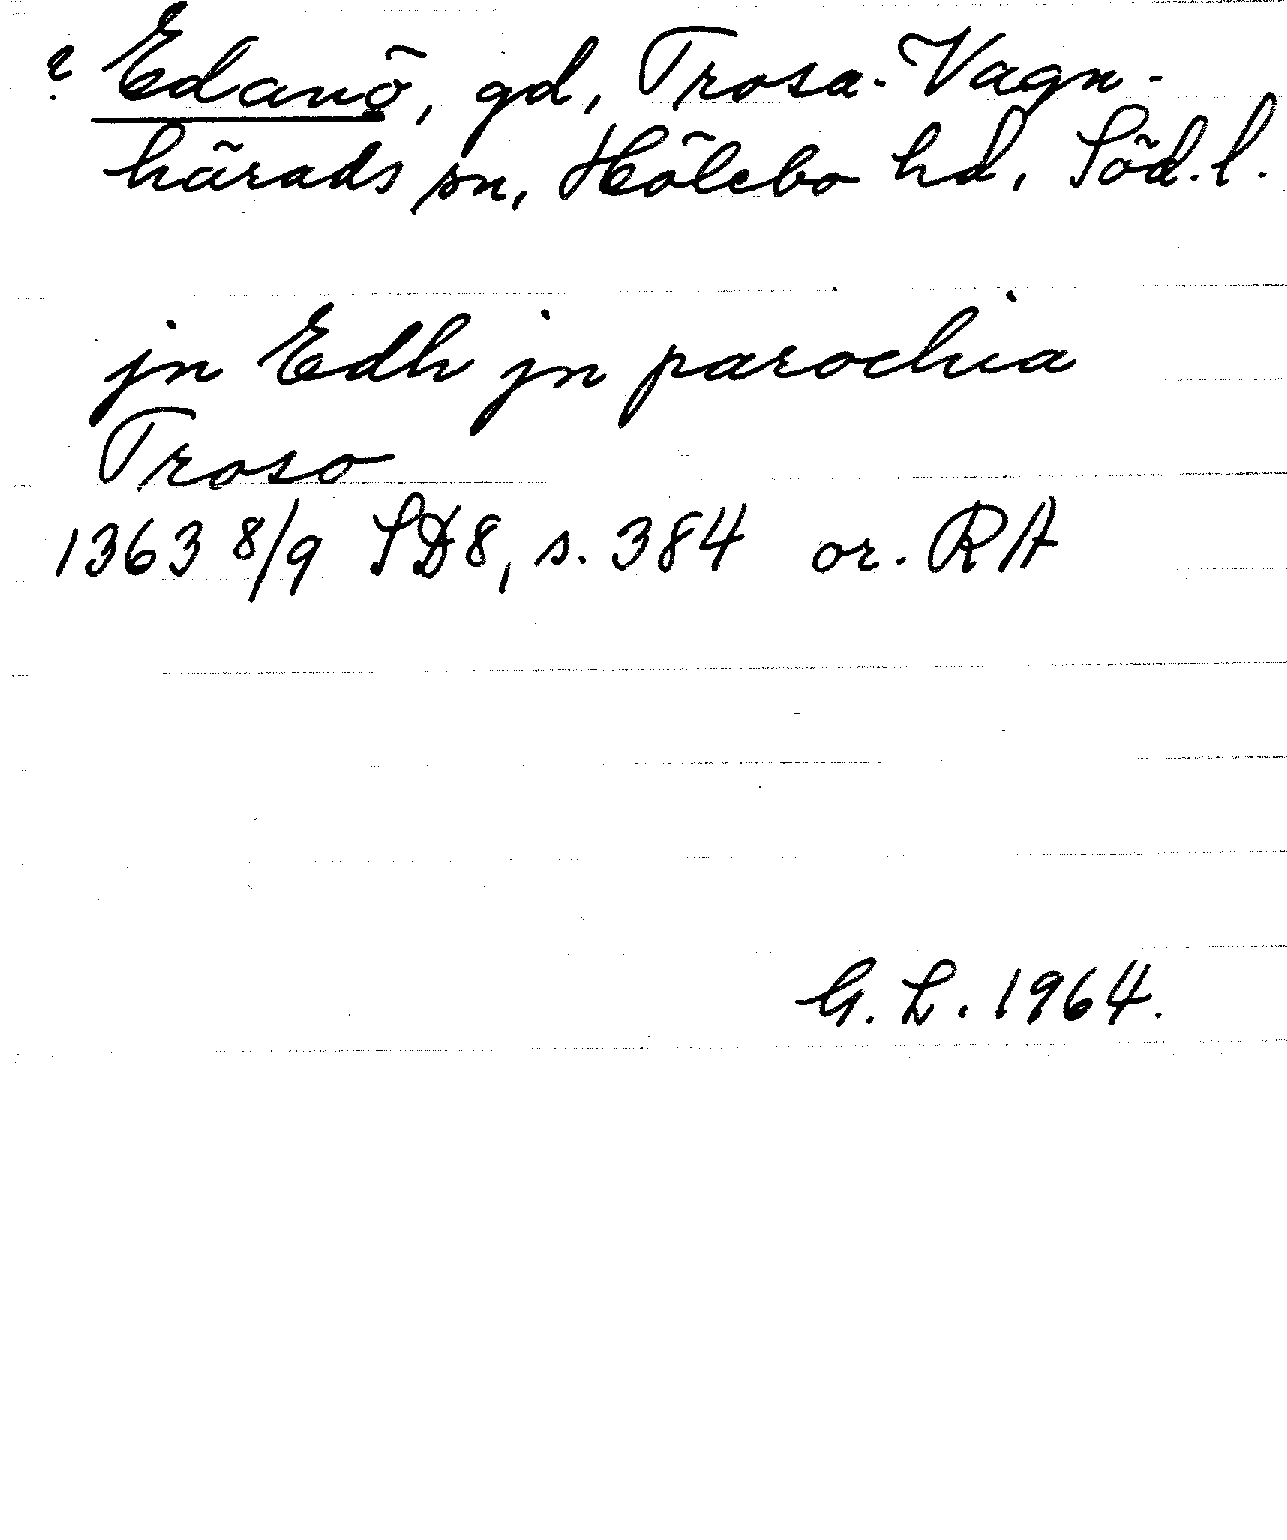 ? Edanö, gd, Trosa-Vagn-
härads sn, Hölebo hd, Söd. l.
jn Edh jn parochia
Troso
1363 8/9 SD8, s. 384 or. RA
G. L. 1964.